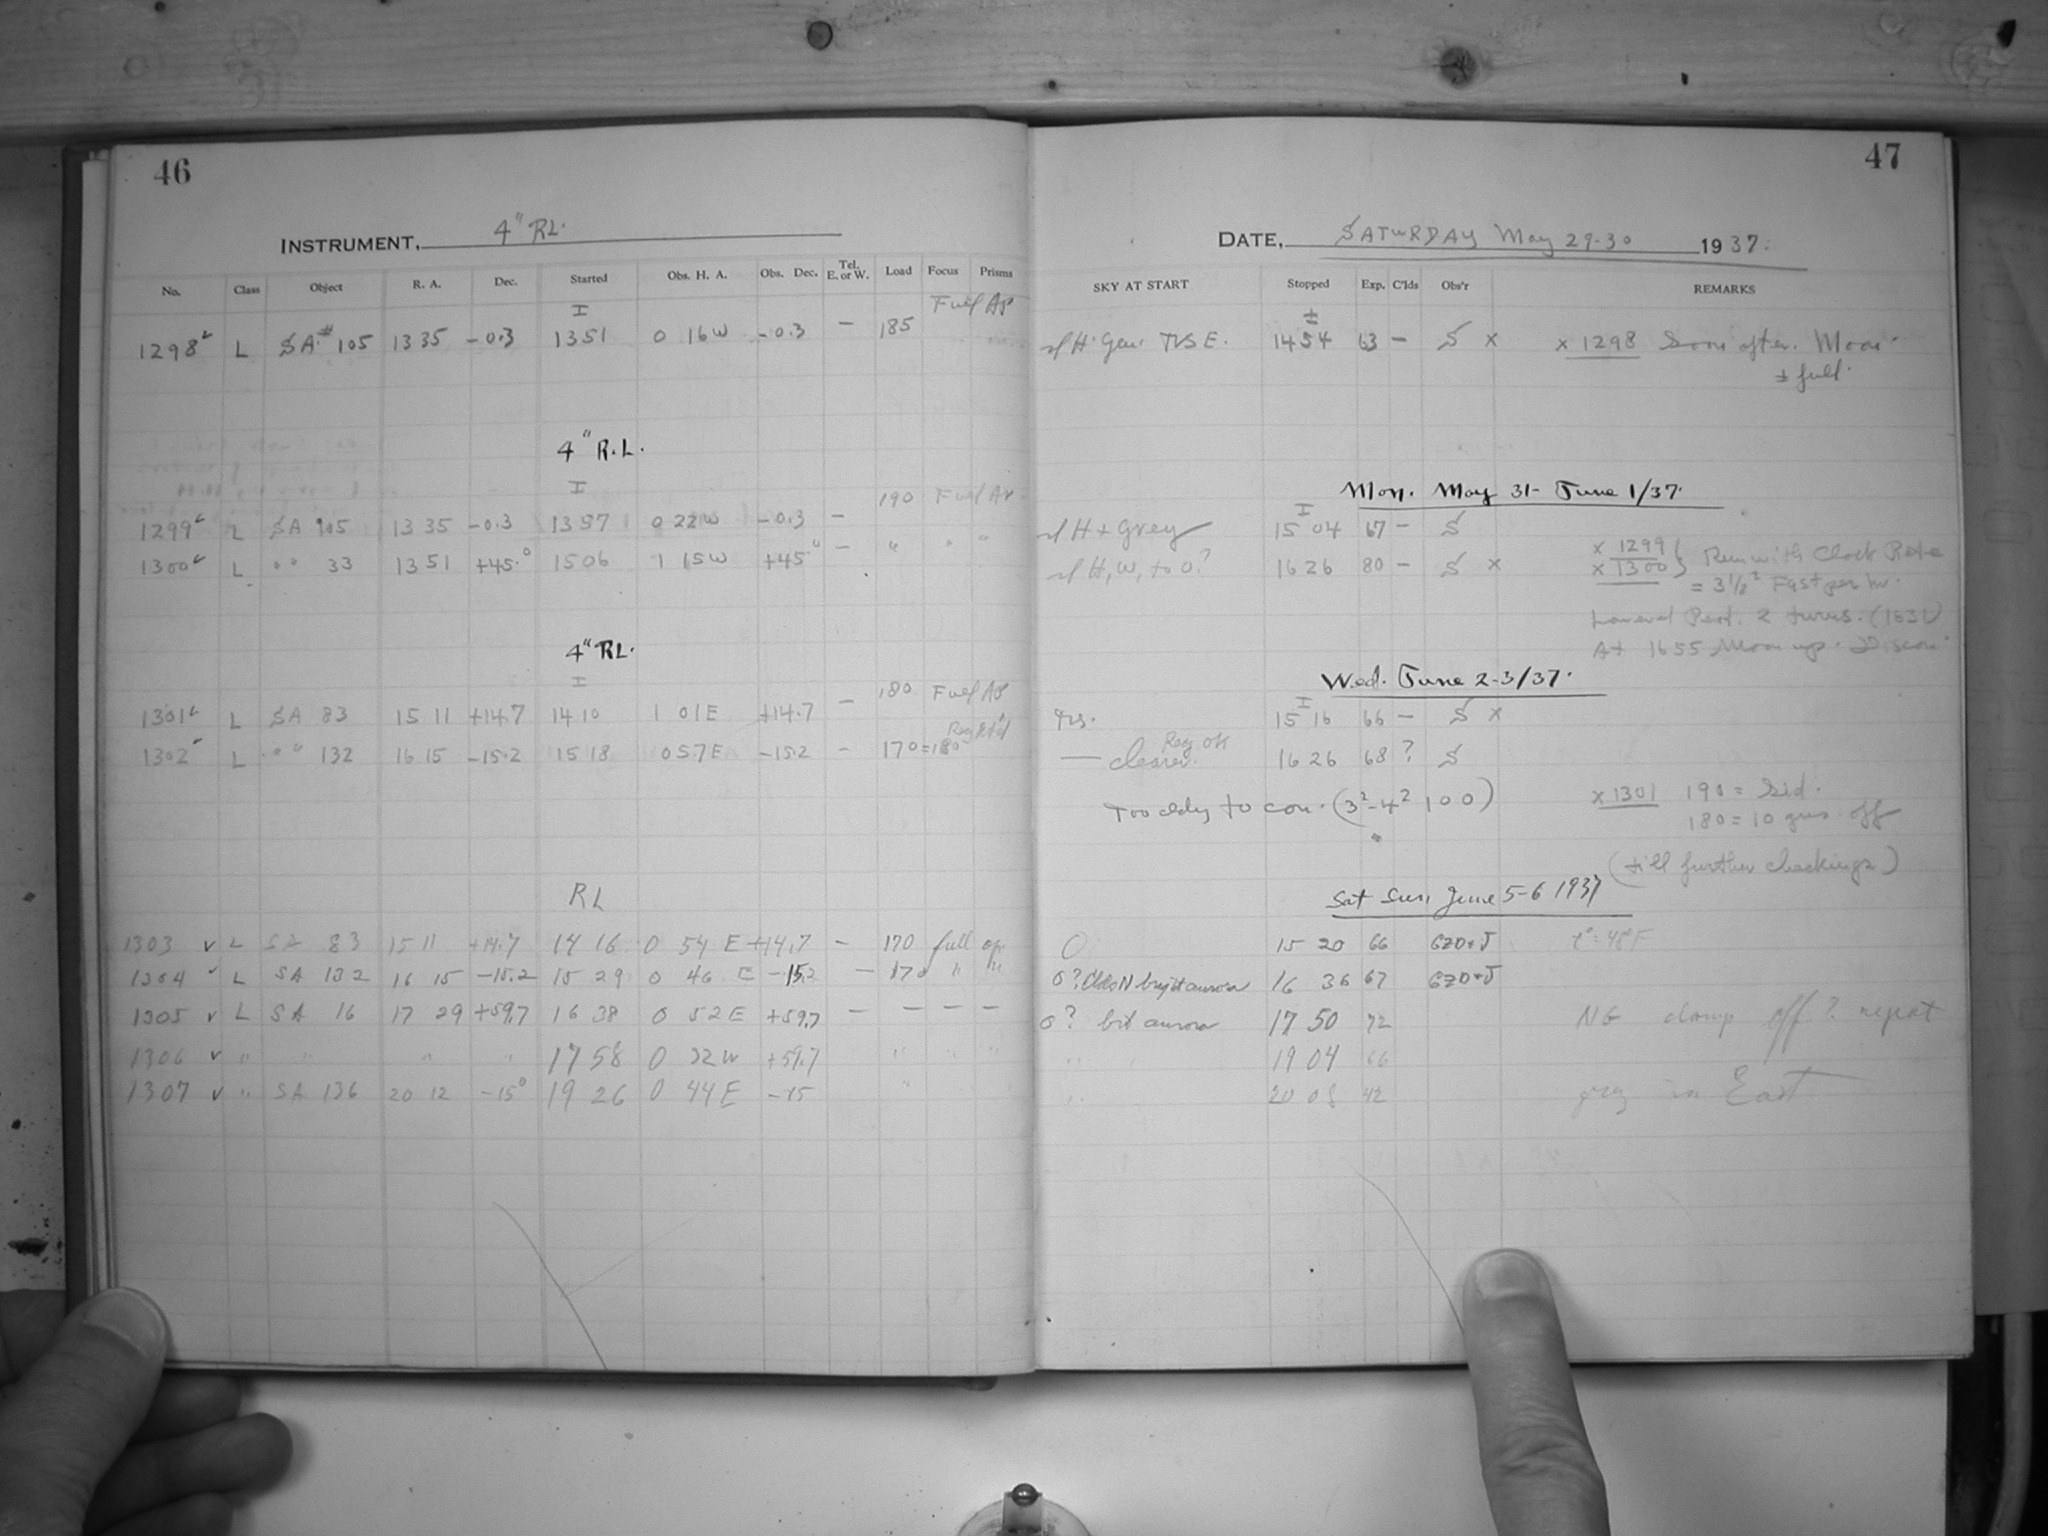 46
INSTRUMENT, 4" RL.
No. Class Object R. A. Dec. Started Obs. H. A. Obs. Dec. Tel. E. or W. Load Focus Prisms
I
1298 L SA # 105 13 35 -0.3 13 51 0 16 W -0.3 — 185
4" R.L.
I
190
1299 L SA 105 13 35 -0.3 13 57 0 22 W -0.3 —
1300 L " " 33 13 51 +45.° 15 06 1 15 W +45° — " " "
4" RL.
I
180
1301 L SA 83 15 11 +14.7 14 10 1 01 E +14.7 —
1302 L " " 132 16 15 -15.2 15 18 0 57 E -15.2 — 170=180
RL
1303 v L SA 83 15 11 +14.7 14 16 0 54 E +14.7 — 170 full op.
1304 v L SA 132 16 15 -15.2 15 29 0 46 E -15.2 — 170 " "
1305 v L SA 16 17 29 +59.7 16 38 0 52 E +59.7 — — — —
1306 v " " " " 17 58 0 32 W +59.7 " " "
1307 v " SA 136 20 12 -15° 19 26 0 44 E -15 "
47
DATE, SATURDAY May 29-30 1937.
SKY AT START Stopped Exp. C'lds Obs'r REMARKS
H. Gen. E. 14 54 63 — S x x 1298 Soon after. Moon
± full.
Mon. May 31- June 1/37.
I
H + Grey 15 04 67 — S
H, W, to 0? 16 26 80 — S x
x 1299
x 1300 } Run with Clock Rate
= 3 1/2 Fast per hr.
2 turns. (1631)
At 1655 Moon up.
Wed. June 2-3/37.
I
15 16 66 — S x
Reg ok
— clearer. 16 26 68 ? S
Too cldy to con. (3²-4² 100)
x 1301 190 = Sid.
180 = 10 off
(till further checkings)
Sat Sun, June 5-6 1937
0 15 20 66 GZD+J t°: 48°F
0? Clds N bright aurora 16 36 67 GZD+J
0? bit aurora 17 50 72 NG clamp off? repeat
" " 19 04 66
" 20 08 42 grey in East